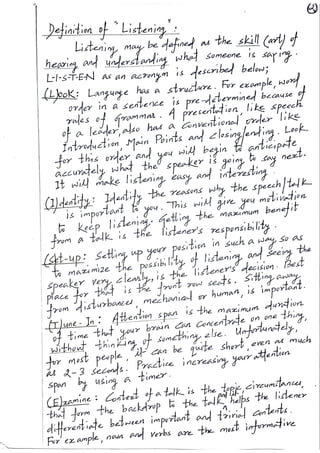 Definition of "Listening":
Listening may be defined as the skill (art) of
hearing and understanding what someone is saying.
L-I-S-T-E-N as an acronym is described below;
(L)ooK: Language has a structure. For example, word
order in a sentence is pre-determined because of
rules of Grammar. A presentation, like speech
of a leader, also has a conventional order like
Introduction, Main Points and closing/ending. Look
for this order and you will begin to anticipate
accurately what the speaker is going to say next.
It will make listening easy and interesting.
(I)dentify: Identify the reasons why the speech/talk
is important to you. This will give you motivation
to keep listening. Getting the maximum benefit
from a talk is the listener's responsibility.
(S)et-up: Setting up your position in such a way, so as
to maximize the possibility of listening, and seeing the
speaker very clearly, is the listener's decision. Best
place for that is the front row seats. Sitting away
from disturbances, mechanical or human, is important.
(T)une-In: Attention span is the maximum duration
of time that your brain can concentrate on one thing,
without thinking of something else. Unfortunately,
for most people, it can be quite short, even as much
as 2-3 seconds. Practice increasing your attention
span by using a timer.
(E)xamine: Context of a talk is the topic, circumstances,
that form the backdrop to the talk, helps the listener
differentiate between important and trivial contents.
For example, noun and verbs are the most informative